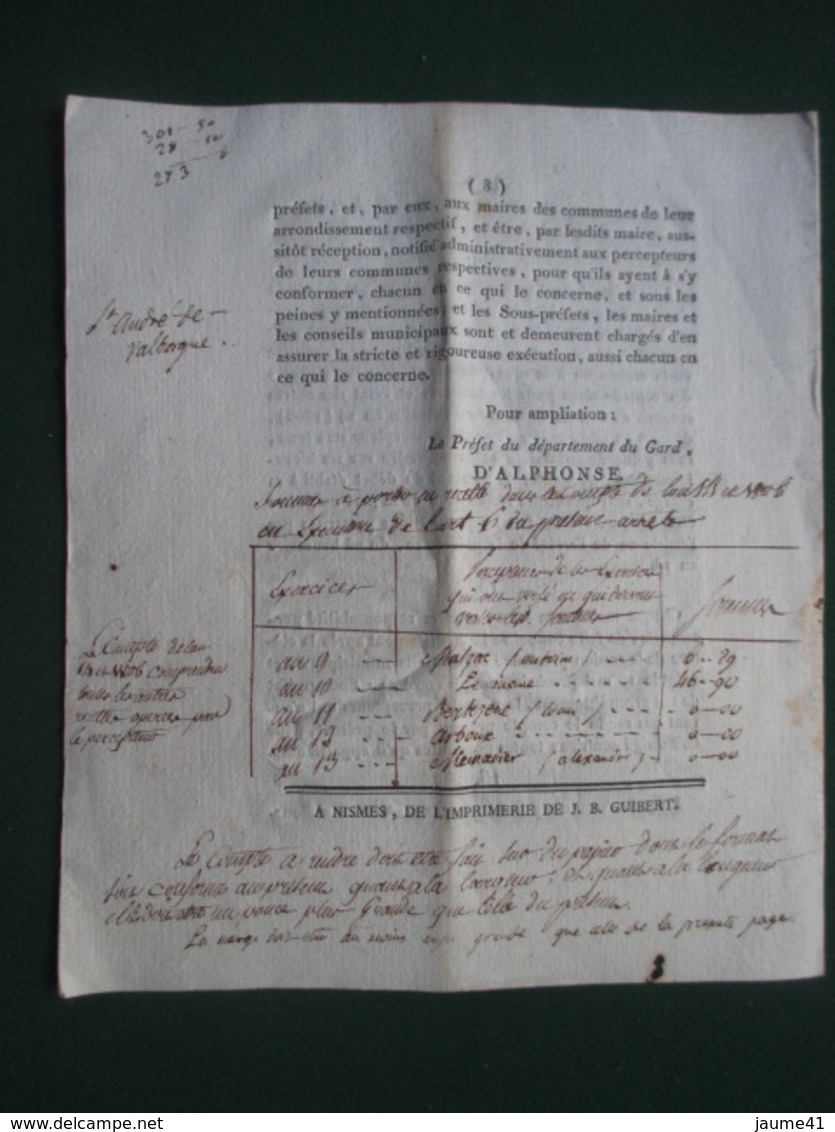 301 - 50
28 - 50
273 0
( 8 )
préfets, et, par eux, aux maires des communes de leur
arrondissement respectif, et être, par lesdits maire, aus-
sitôt réception, notifié administrativement aux percepteurs
de leurs communes respectives, pour qu'ils ayent à s'y
conformer, chacun en ce qui le concerne, et sous les
peines y mentionnées; et les Sous-préfets, les maires et
les conseils municipaux sont et demeurent chargés d'en
assurer la stricte et rigoureuse exécution, aussi chacun en
ce qui le concerne.
St André de
valborgne.
Pour ampliation:
Le Préfet du département du Gard,
D'ALPHONSE.
Sommes à porter en recette dans le compte de l'an
en de l'art 6 du présent arrêté
Exercices
Percepteurs de ces Exercices
qui ont versé ou qui doivent
verser
Sommes
an 9 Malzac (antoine) 0 -- 29
an 10 Le même 46 -- 90
an 11 Bertezene (Louis) 0 - 00
an 12 arboux 0 - 00
an 13 (alexandre) 0 - 00
Le Compte de l'an
13 et 1806 comprendra
toutes les autres
recettes par
le percepteur
A NISMES, DE L'IMPRIMERIE DE J. B. GUIBERT.
Le Compte a rendre doit etre fait sur du papier dont le format
soit conforme au présent quant a la largeur; Et quant a la longueur
elle doit etre un pouce plus Grande que celle du présent.
La marge doit etre au moins aussi grande que celle de la présente page.
delcampe.net
jaume41